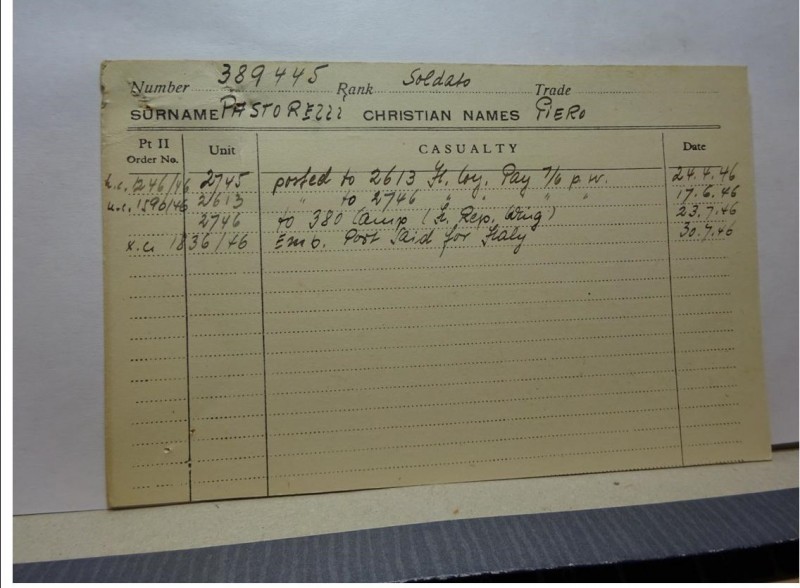 Number 389445 Rank Soldato Trade
SURNAME PASTORELLI CHRISTIAN NAMES PIERO
Pt II Order No. Unit CASUALTY Date
1246/46 2745 posted to 2613 It. Coy. Pay 7/6 p.w. 24.4.46
1590/46 2613 " to 2746 " " " " 17.6.46
2746 to 380 Camp (It. Rep. Wing) 23.7.46
1836/46 Emb. Port Said for Italy 30.7.46